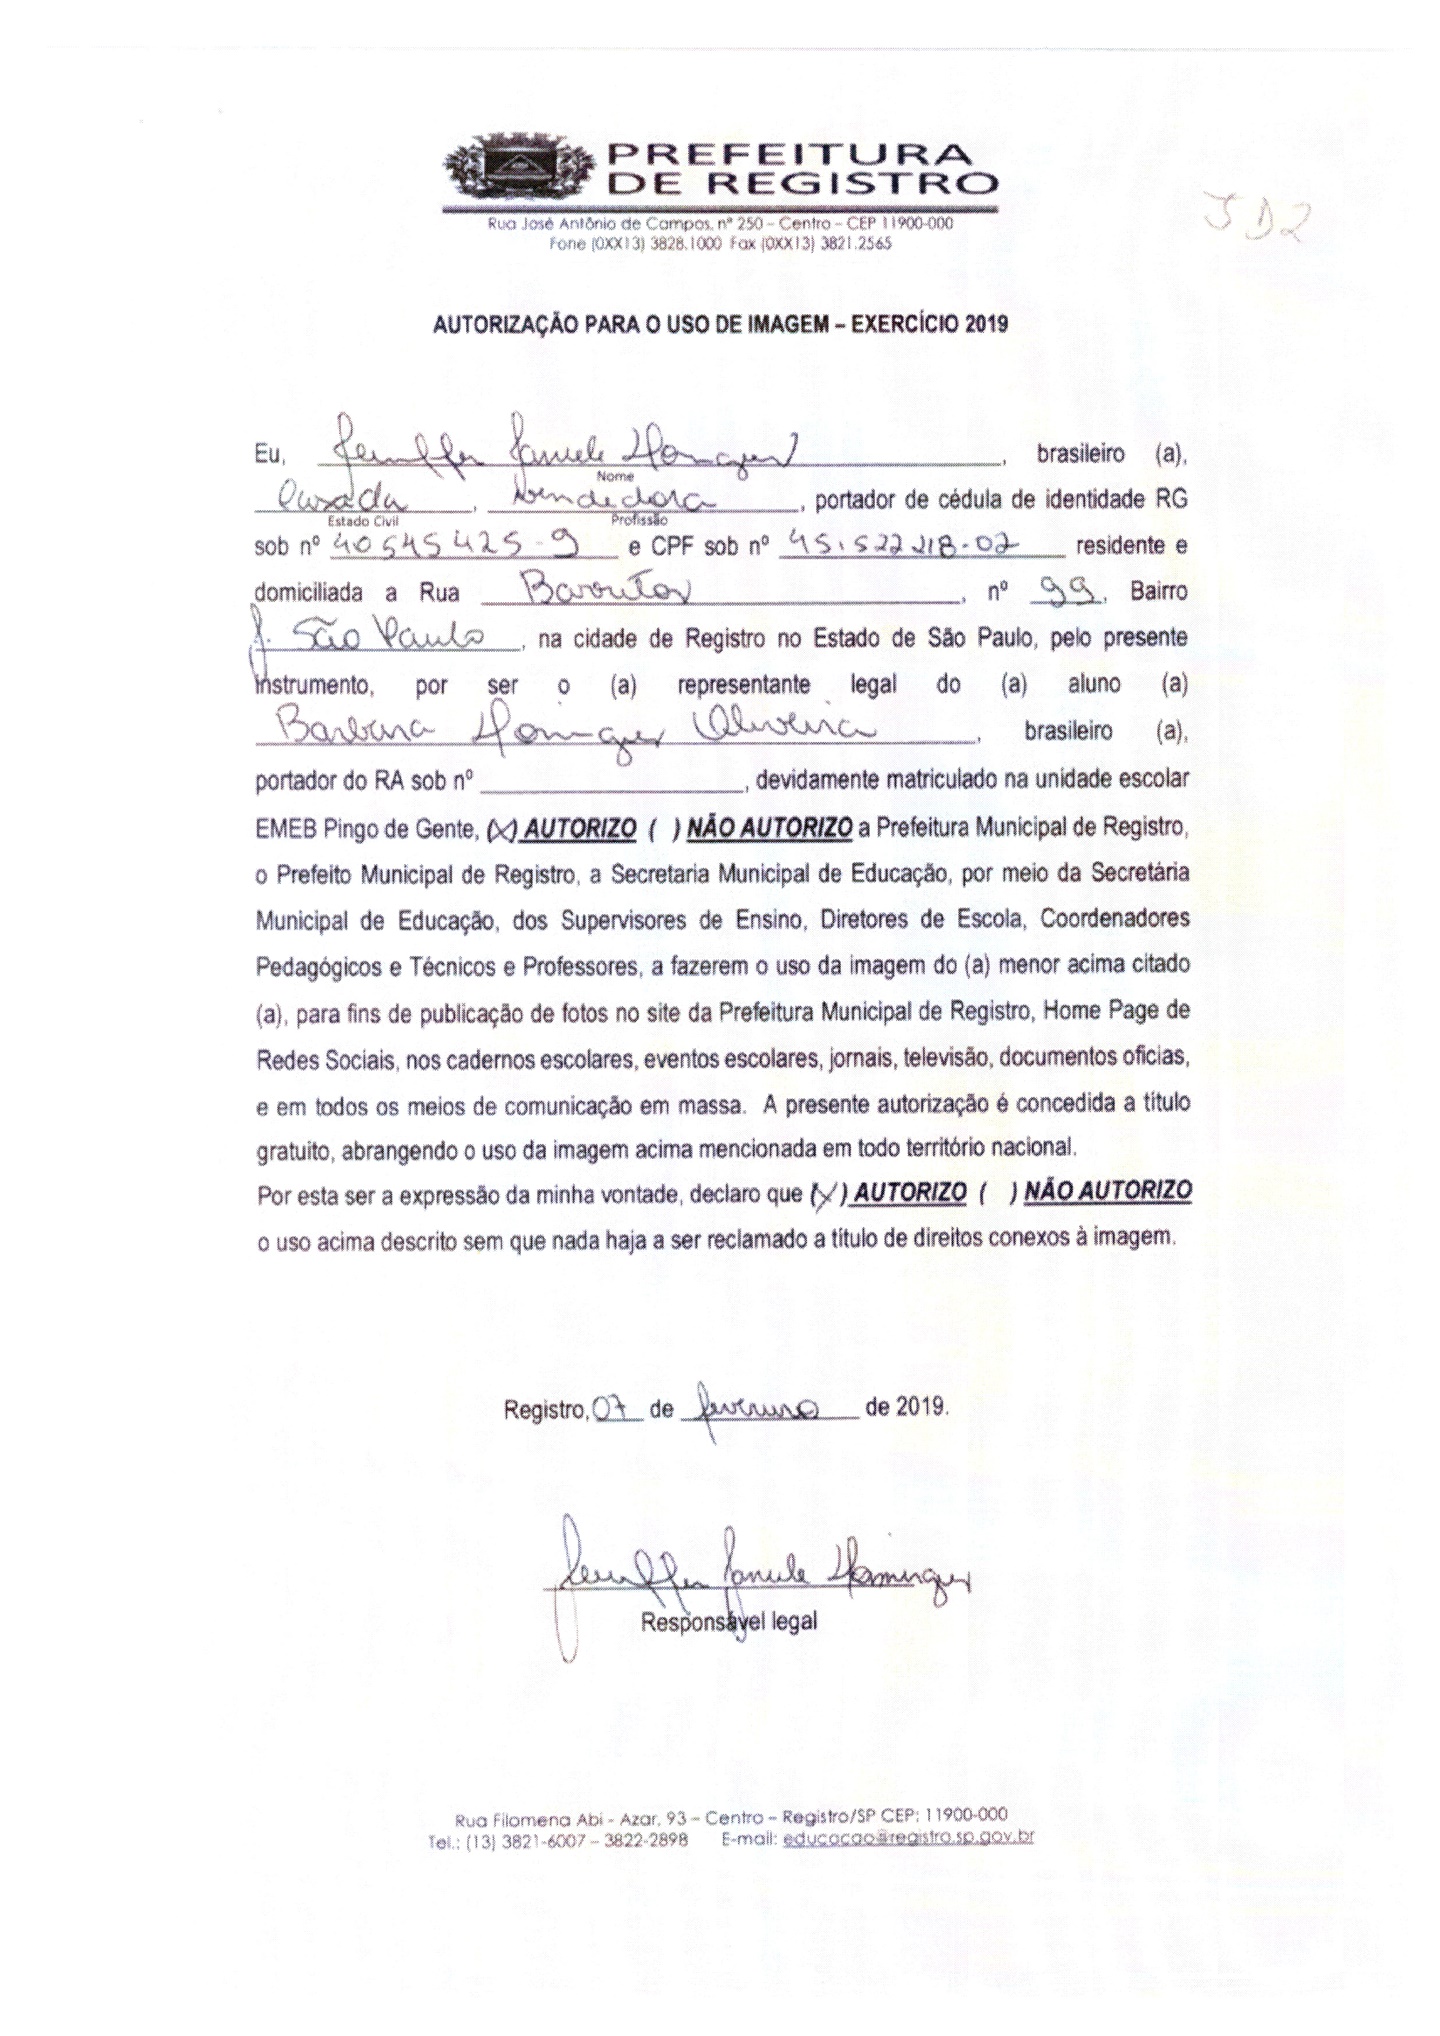 PREFEITURA
DE REGISTRO
Rua José Antônio de Campos, nº 250 – Centro – CEP 11900-000
Fone (0XX13) 3828.1000 Fax (0XX13) 3821.2565
JD2
AUTORIZAÇÃO PARA O USO DE IMAGEM – EXERCÍCIO 2019
Eu, Jeniffer Domingues, brasileiro (a),
Nome
Casada, Vendedora, portador de cédula de identidade RG
Estado Civil Profissão
sob nº 40545425-9 e CPF sob nº residente e
domiciliada a Rua, nº 99, Bairro
J. São Paulo, na cidade de Registro no Estado de São Paulo, pelo presente
Instrumento, por ser o (a) representante legal do (a) aluno (a)
Barbara Domingues Oliveira, brasileiro (a),
portador do RA sob nº ____________, devidamente matriculado na unidade escolar
EMEB Pingo de Gente, (X) AUTORIZO ( ) NÃO AUTORIZO a Prefeitura Municipal de Registro,
o Prefeito Municipal de Registro, a Secretaria Municipal de Educação, por meio da Secretária
Municipal de Educação, dos Supervisores de Ensino, Diretores de Escola, Coordenadores
Pedagógicos e Técnicos e Professores, a fazerem o uso da imagem do (a) menor acima citado
(a), para fins de publicação de fotos no site da Prefeitura Municipal de Registro, Home Page de
Redes Sociais, nos cadernos escolares, eventos escolares, jornais, televisão, documentos oficias,
e em todos os meios de comunicação em massa. A presente autorização é concedida a título
gratuito, abrangendo o uso da imagem acima mencionada em todo território nacional.
Por esta ser a expressão da minha vontade, declaro que (X) AUTORIZO ( ) NÃO AUTORIZO
o uso acima descrito sem que nada haja a ser reclamado a título de direitos conexos à imagem.
Registro, 07 de fevereiro de 2019.
Jeniffer Domingues
Responsável legal
Rua Filomena Abi - Azar, 93 – Centro – Registro/SP CEP: 11900-000
Tel.: (13) 3821-6007 – 3822-2898 E-mail: educacao@registro.sp.gov.br